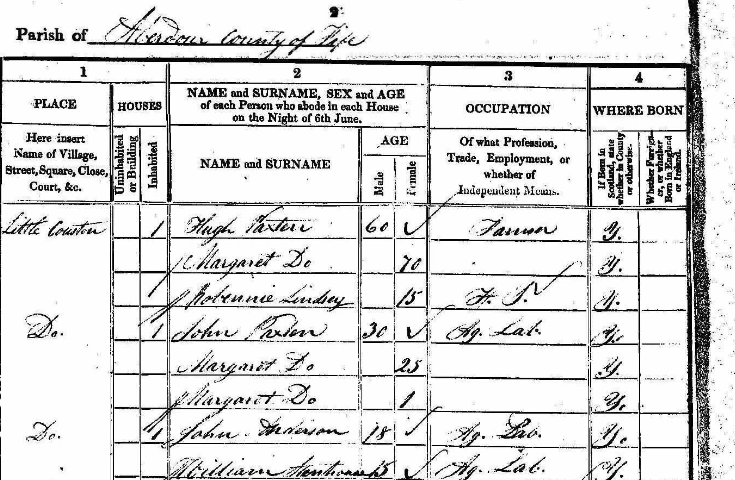 2
Parish of Aberdour County of Fife
1 2 3 4
PLACE HOUSES NAME and SURNAME, SEX and AGE of each Person who abode in each House on the Night of 6th June. OCCUPATION WHERE BORN
Here insert Name of Village, Street, Square, Close, Court, &c.
Uninhabited or Building
Inhabited
NAME and SURNAME
AGE
Male
Female
Of what Profession, Trade, Employment, or whether of Independent Means.
If Born in Scotland, state whether in County or otherwise.
Whether Foreigner, or whether Born in England or Ireland.
Little Couston 1 Hugh Paxton 60 Farmer Y.
Margaret Do 70 Y.
Robennie Lindsey 15 F. S. Y.
Do. 1 John Paxton 30 Ag. Lab. Y.
Margaret Do 25 Y
Margaret Do 1 Y.
Do. 1 John Anderson 18 Ag. Lab. Y.
William Stenhouse 15 Ag. Lab. Y.